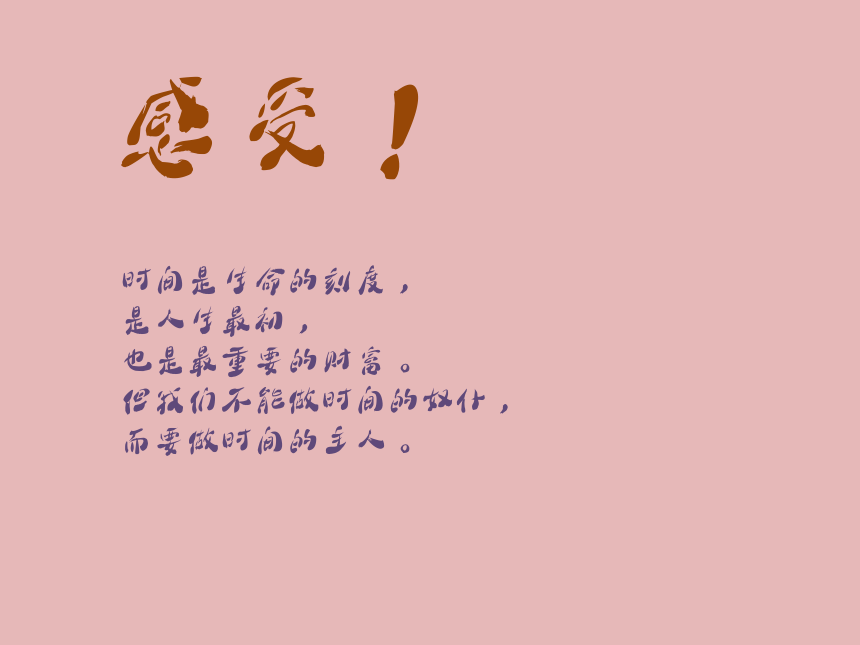 感受！
时间是生命的刻度，
是人生最初，
也是最重要的财富。
但我们不能做时间的奴仆，
而要做时间的主人。